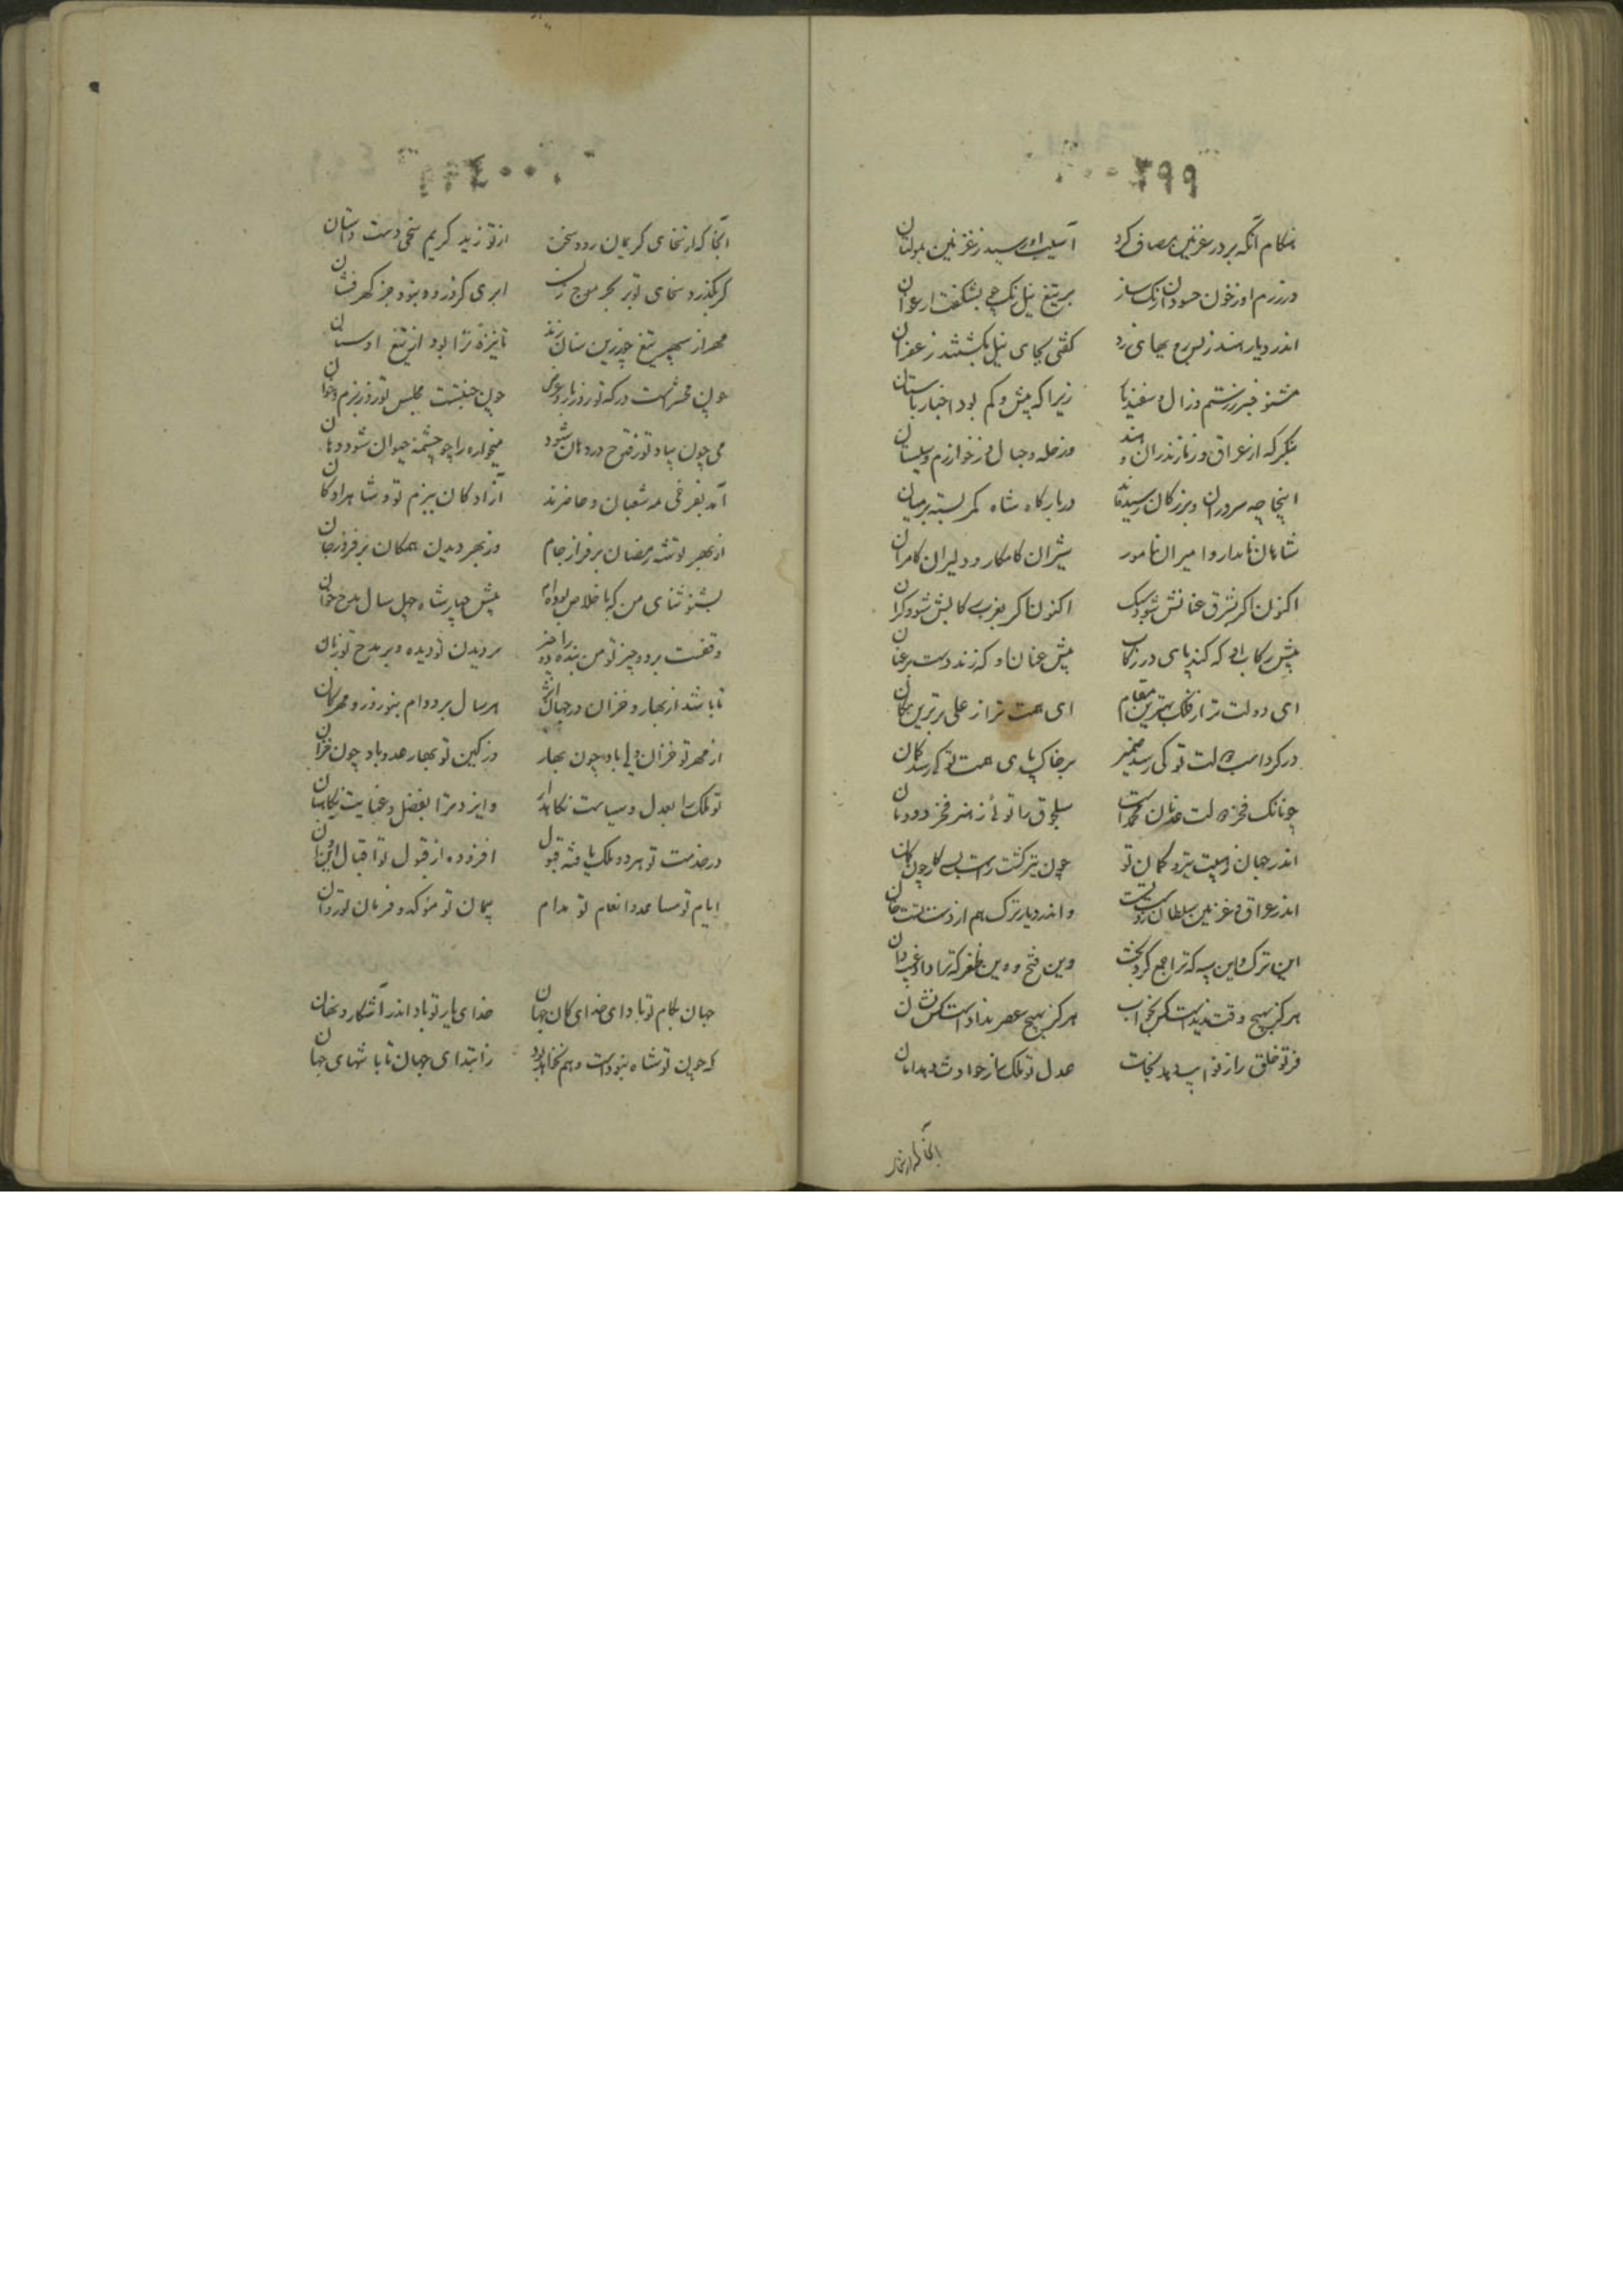 ۳۹۹
هنگام آنکه بر در غزنین مصاف کرد آسیب او رسید ز غزنین بمولتان
در رزم او ز خون حسودان رنک ساز بر تیغ نیل رنک بشکفت ارغوان
اندر دیار هند ز بس رویهای زرد کفتی بجای نیل بکشتند زعفران
مشنو خبر ز رستم و زال و سفندیار زیرا که بیش و کم بود اخبار باستان
بنکر که از عراق و ز مازندران و هند وز حله و جبال و ز خوارزم و سیستان
اینجا چه سروران و بزرکان رسیده‌اند در بارکاه شاه کمر بسته بر میان
شاهان نامدار و امیران نامور شیران کامکار و دلیران کامران
اکنون که بشرق عنانش شود سبک اکنون که بغرب رکابش شود کران
پیش رکاب او که کند پای در رکاب پیش عنان او که زند دست بر عنان
ای دولت ترا ز فلک بهترین مقام ای همت ترا ز علی برترین مکان
در کرد اسب دولت تو کی رسد ضمیر بر خاک پای همت تو کی رسد کمان
چونانک فخر دولت عدنان محمد است سلجوق را توئی ز هنر فخر دودمان
اندر جهان ز هیبت تیر و کمان تو چون تیر کشت راست بسی کار چون کمان
اندر عراق و غزنین سلطان ز دست تست و اندر دیار ترک هم از دست تست خان
این ترک و این سپه که ترا جمع کرد بخت وین فتح و وین ظفر که ترا داد غیب دان
هرکز بهیچ وقت ندیدست کس بخواب هرکز بهیچ عصر ندادست کس نشان
فر تو خلق را ز نوائب دهد نجات عدل تو ملک را ز حوادث دهد امان
آنجا که از سخای
۴۰۰
آنجا که از سخای کریمان رود سخن از تو زید کریم سخی دست داستان
کر بکذرد سخای تو بر بحر موج زن ابری کزو رود نبود جز کهر فشان
مهر از سپهر تیغ چو زرین سنان زند تا نیزهٔ ترا بود از تیغ او سنان
چون محشرست درکه تو روز بار و عرض چون جنتست مجلس تو روز بزم و خوان
می چون بیاد تو ز قدح در دهان شود میخواره را چو چشمهٔ حیوان شود دهان
آمد بفرخی مه شعبان و حاضرند آزادکان ببزم تو و شاهزادکان
از بهر توشه رمضان بر فراز جام وز بهر دیدن همکان بر فروز جان
بشنو ثنای من که باخلاص بوده‌ام پیش چهار شاه چهل سال مدح خوان
وقفست بر دو چیز تو من بنده را دو چیز بر دیدن تو دیده و بر مدح تو زبان
تا باشد از بهار و خزان در جهان اثر هر سال بر دوام بنوروز و مهرکان
از مهر تو خزان ولی باد چون بهار وز کین تو بهار عدو باد چون خزان
تو ملک را بعدل و سیاست نکاهدار و ایزد ترا بفضل و عنایت نکاهبان
در خدمت تو هر دو ملک یافته قبول افزوده از قبول تو اقبال این و آن
ایام تو مساعد و انعام تو مدام پیمان تو مؤکد و فرمان تو روان
جهان بکام تو باد ای خدایکان جهان خدای یار تو باد اندر آشکار و نهان
که چون تو شاه نبودست و هم نخواهد بود ز ابتدای جهان تا بانتهای جهان